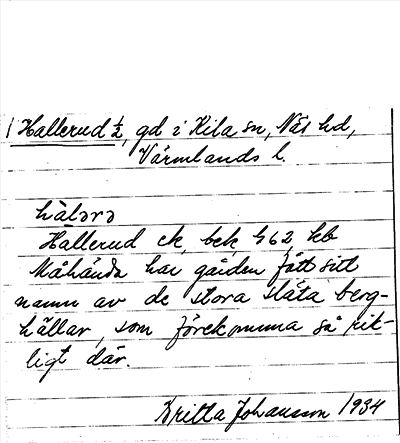 Hallerud ½, gd i Kila sn, Näs hd,
Värmlands l.
hàlərə
Hallerud ek, bek 462 kb
Måhända har gården fått sitt
namn av de stora släta berg-
hällar, som förekomma så rik-
ligt där.
Britta Johansson 1934